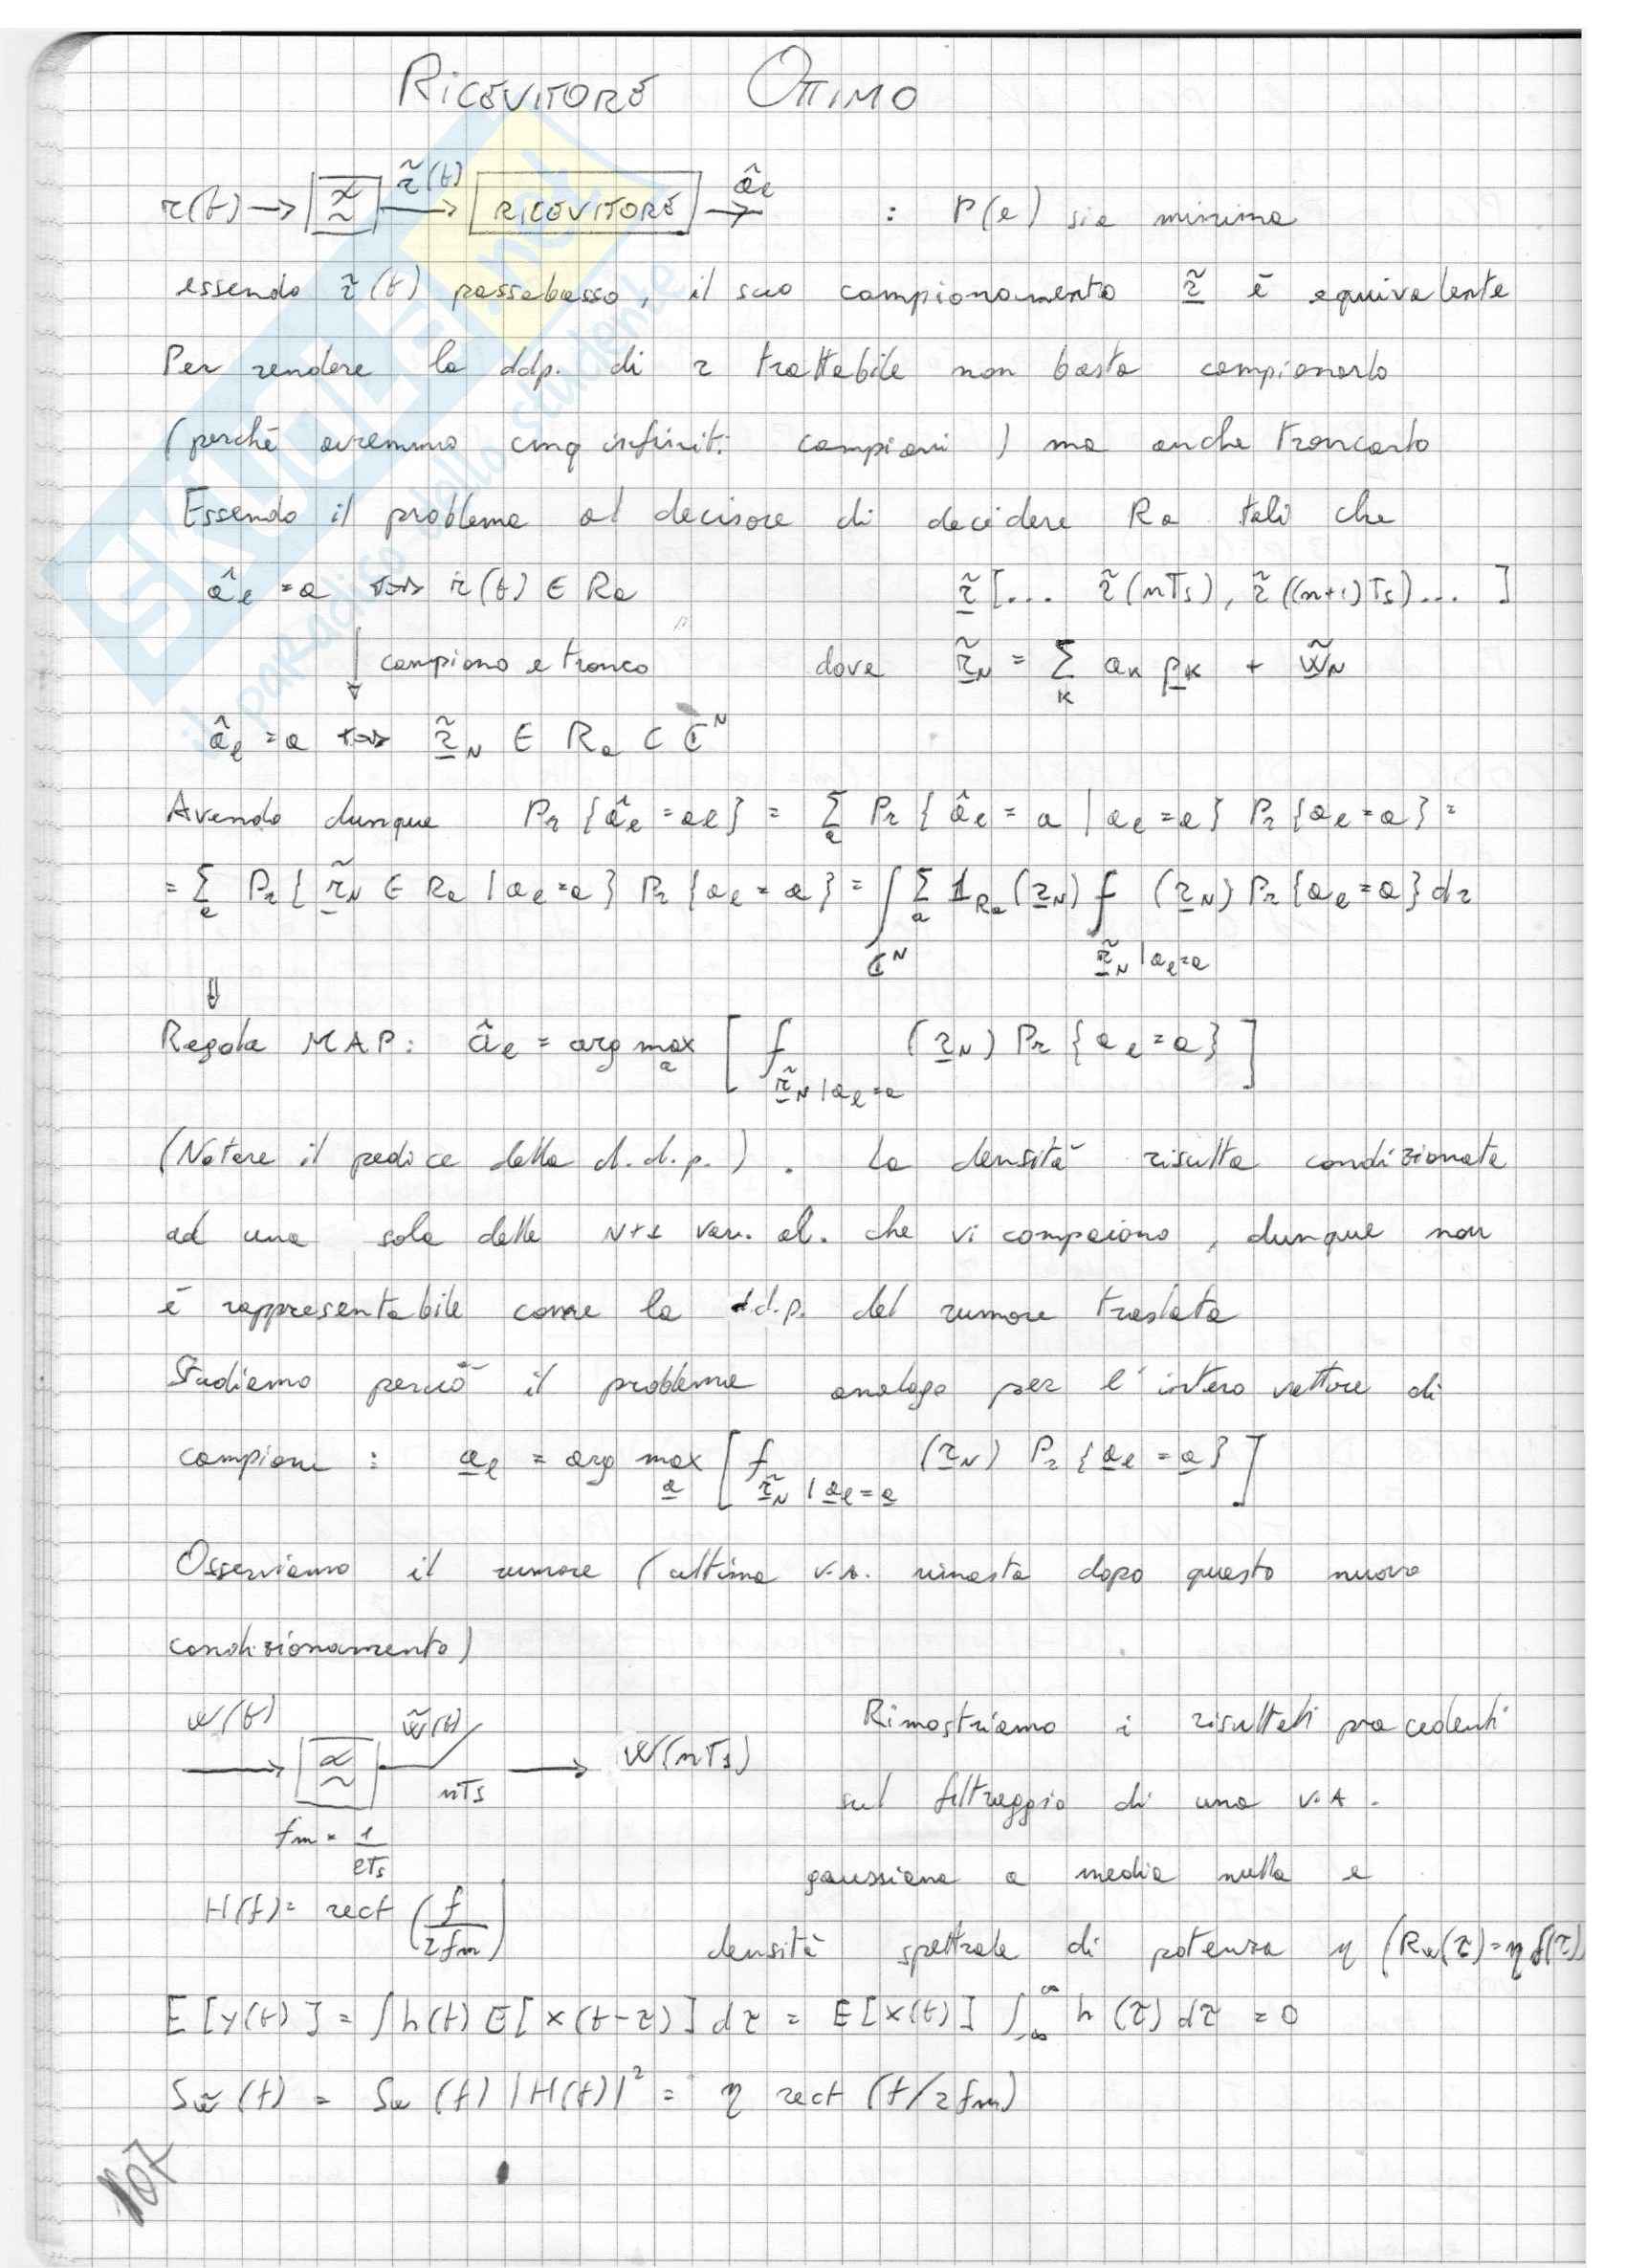 RICEVITORE OTTIMO
r(t) → [≈] r̃(t) → [RICEVITORE] → â_l : P(e) sia minima
essendo r̃(t) passabasso, il suo campionamento r̃ è equivalente
Per rendere la ddp. di r trattabile non basta campionarlo
(perché avremmo cmq infiniti campioni) ma anche troncarlo
Essendo il problema al decisore di decidere Ra tali che
â_l = a ⟺ r(t) ∈ Ra r̃ [... r̃(nTs), r̃((n+1)Ts)... ]
↓ campiono e tronco dove r̃_N = Σ_k a_k p_k + w̃_N
â_l = a ⟺ r̃_N ∈ R_a ⊂ ℂ^N
Avendo dunque Pr{â_l = al} = Σ_a Pr{â_l = a | a_l = a} Pr{a_l = a} =
= Σ_a Pr{r̃_N ∈ Ra | a_l = a} Pr{a_l = a} = ∫_{ℂ^N} Σ_a 1_{Ra}(r_N) f_{r̃_N | a_l = a}(r_N) Pr{a_l = a} dr
⇓
Regola MAP: â_l = arg max_a [ f_{r̃_N | a_l = a}(r_N) Pr{a_l = a} ]
(Notare il pedice della d.d.p.). La densità risulta condizionata
ad una sola delle N+1 var. al. che vi compaiono, dunque non
è rappresentabile come la d.d.p. del rumore traslata
Studiamo perciò il problema analogo per l'intero vettore di
campioni : a_l = arg max_a [ f_{r̃_N | a_l = a}(r_N) Pr{a_l = a} ]
Osserviamo il rumore (ultima V.A. rimasta dopo questo nuovo
condizionamento)
w(t) → [≈] w̃(t) nTs → W(nTs) Rimostriamo i risultati precedenti
sul filtraggio di una V.A.
fm = 1/2Ts
gaussiana a media nulla e
H(f) = rect (f/2fm) densità spettrale di potenza η (Rw(τ) = η δ(τ))
E[y(t)] = ∫ h(t) E[x(t-τ)] dτ = E[x(t)] ∫_{-∞}^{∞} h(τ) dτ = 0
S_w̃(f) = S_w(f) |H(f)|² = η rect (f/2fm)
107
SKUOLA.net
il paradiso dello studente